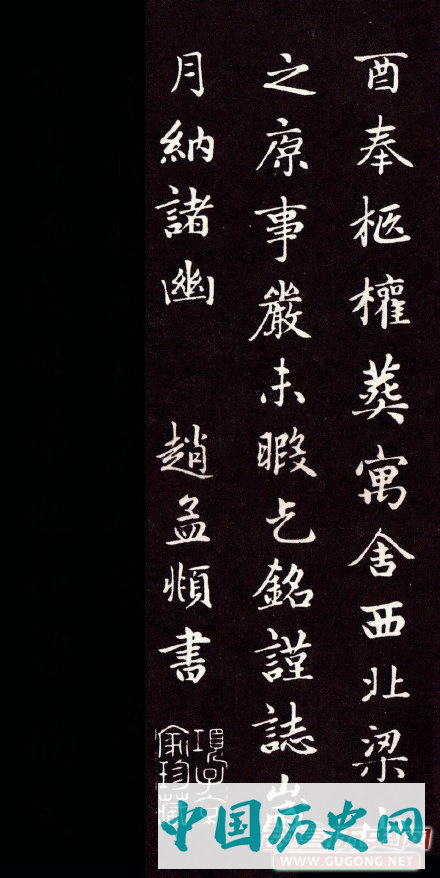 酉奉柩權葬寓舍西北梁
之原事嚴未暇乞銘謹誌
月納諸幽 趙孟頫書
中国历史网
WWW.GUGONG.NET